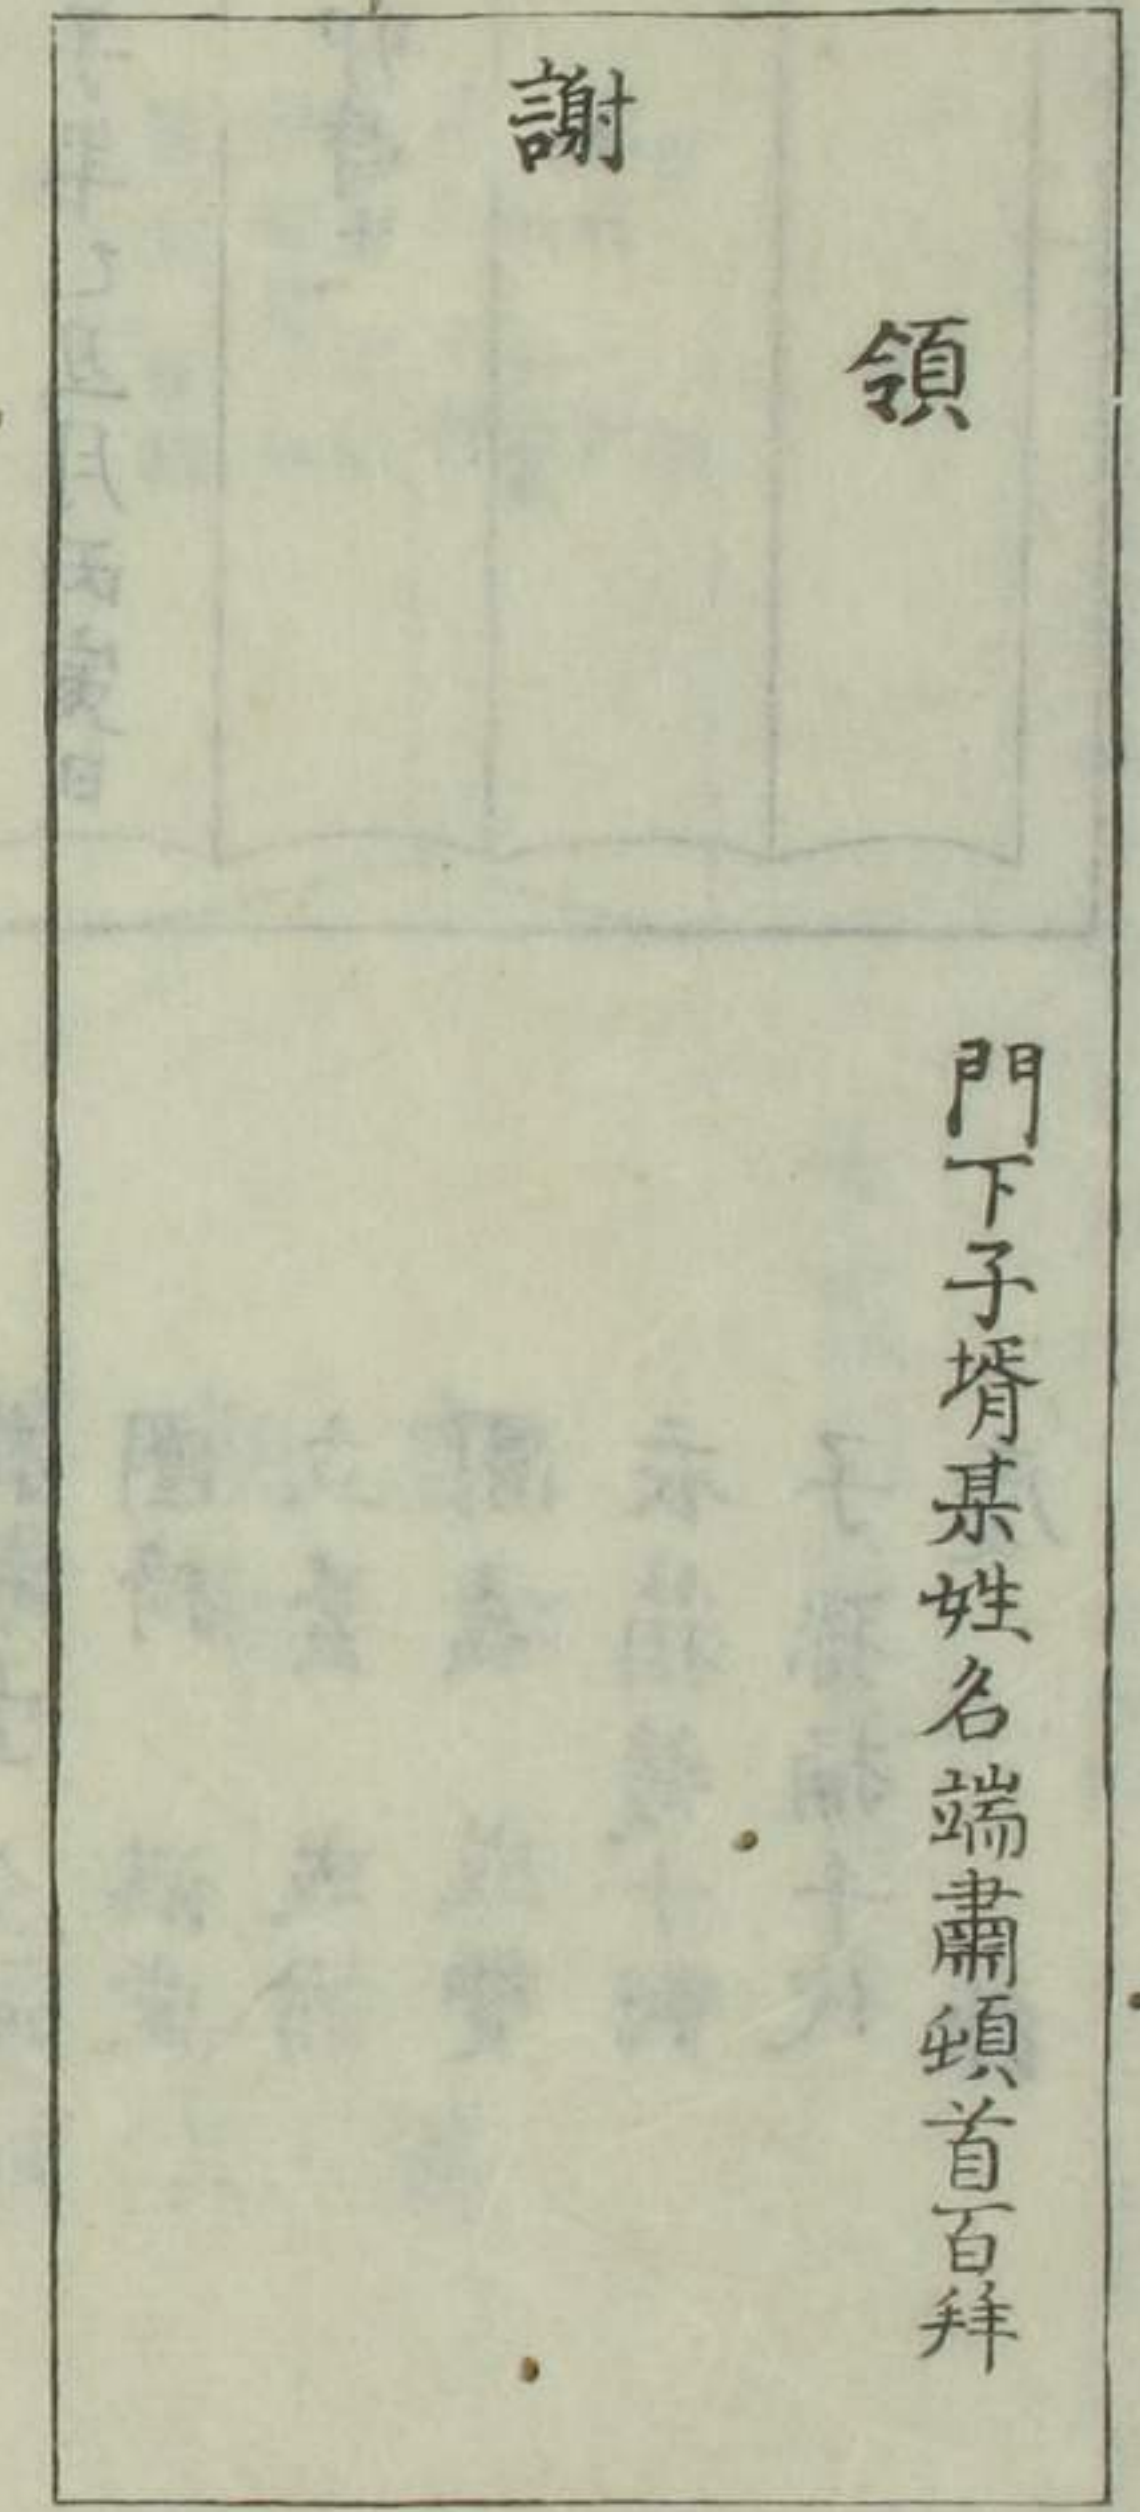 領
門下子壻某姓名端肅頓首百拜
謝